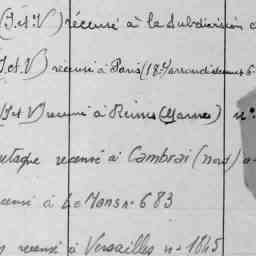 (J.et.V) récensé à la subdivision
J.et V) recensé à Paris (18e) arrondissement 6
(J et V) recensé à Reims (Marne) n°
recensé à Cambrai (Nord)
censé à Le Mans n° 683
recensé à Versailles n° 1845